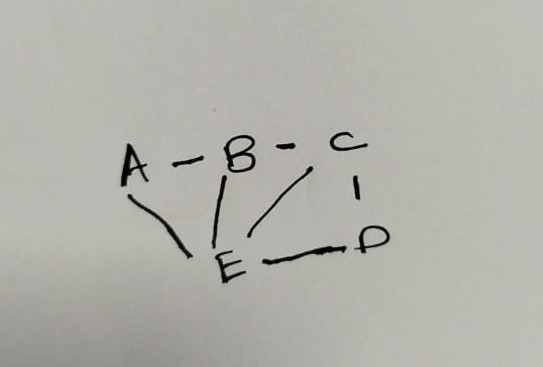 A - B - C
E - D